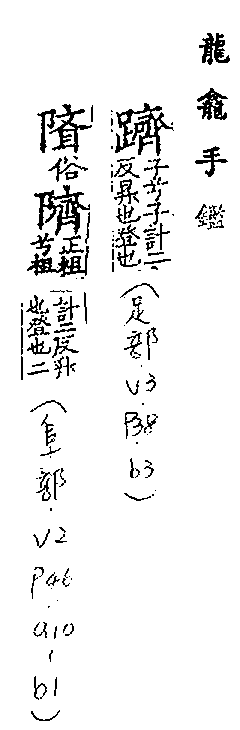 龍龕手鑑
躋 子兮子計二
反昇也登也 (足部.V3.
P38.b3)
隮俗隮正祖
兮祖
計二反升
也登也二 (阜部.V2
P46.a10-b1)